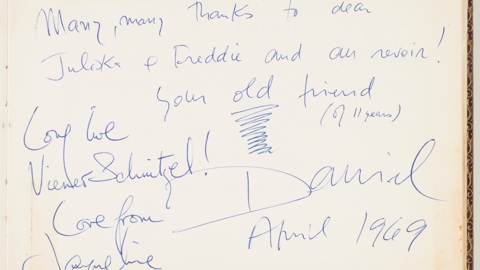 Many, many thanks to dear
Juliska & Freddie and au revoir!
Your old friend
(of 11 years)
Daniel
April 1969
Long live
Viener Schnitzel!
Love from
Jacqueline